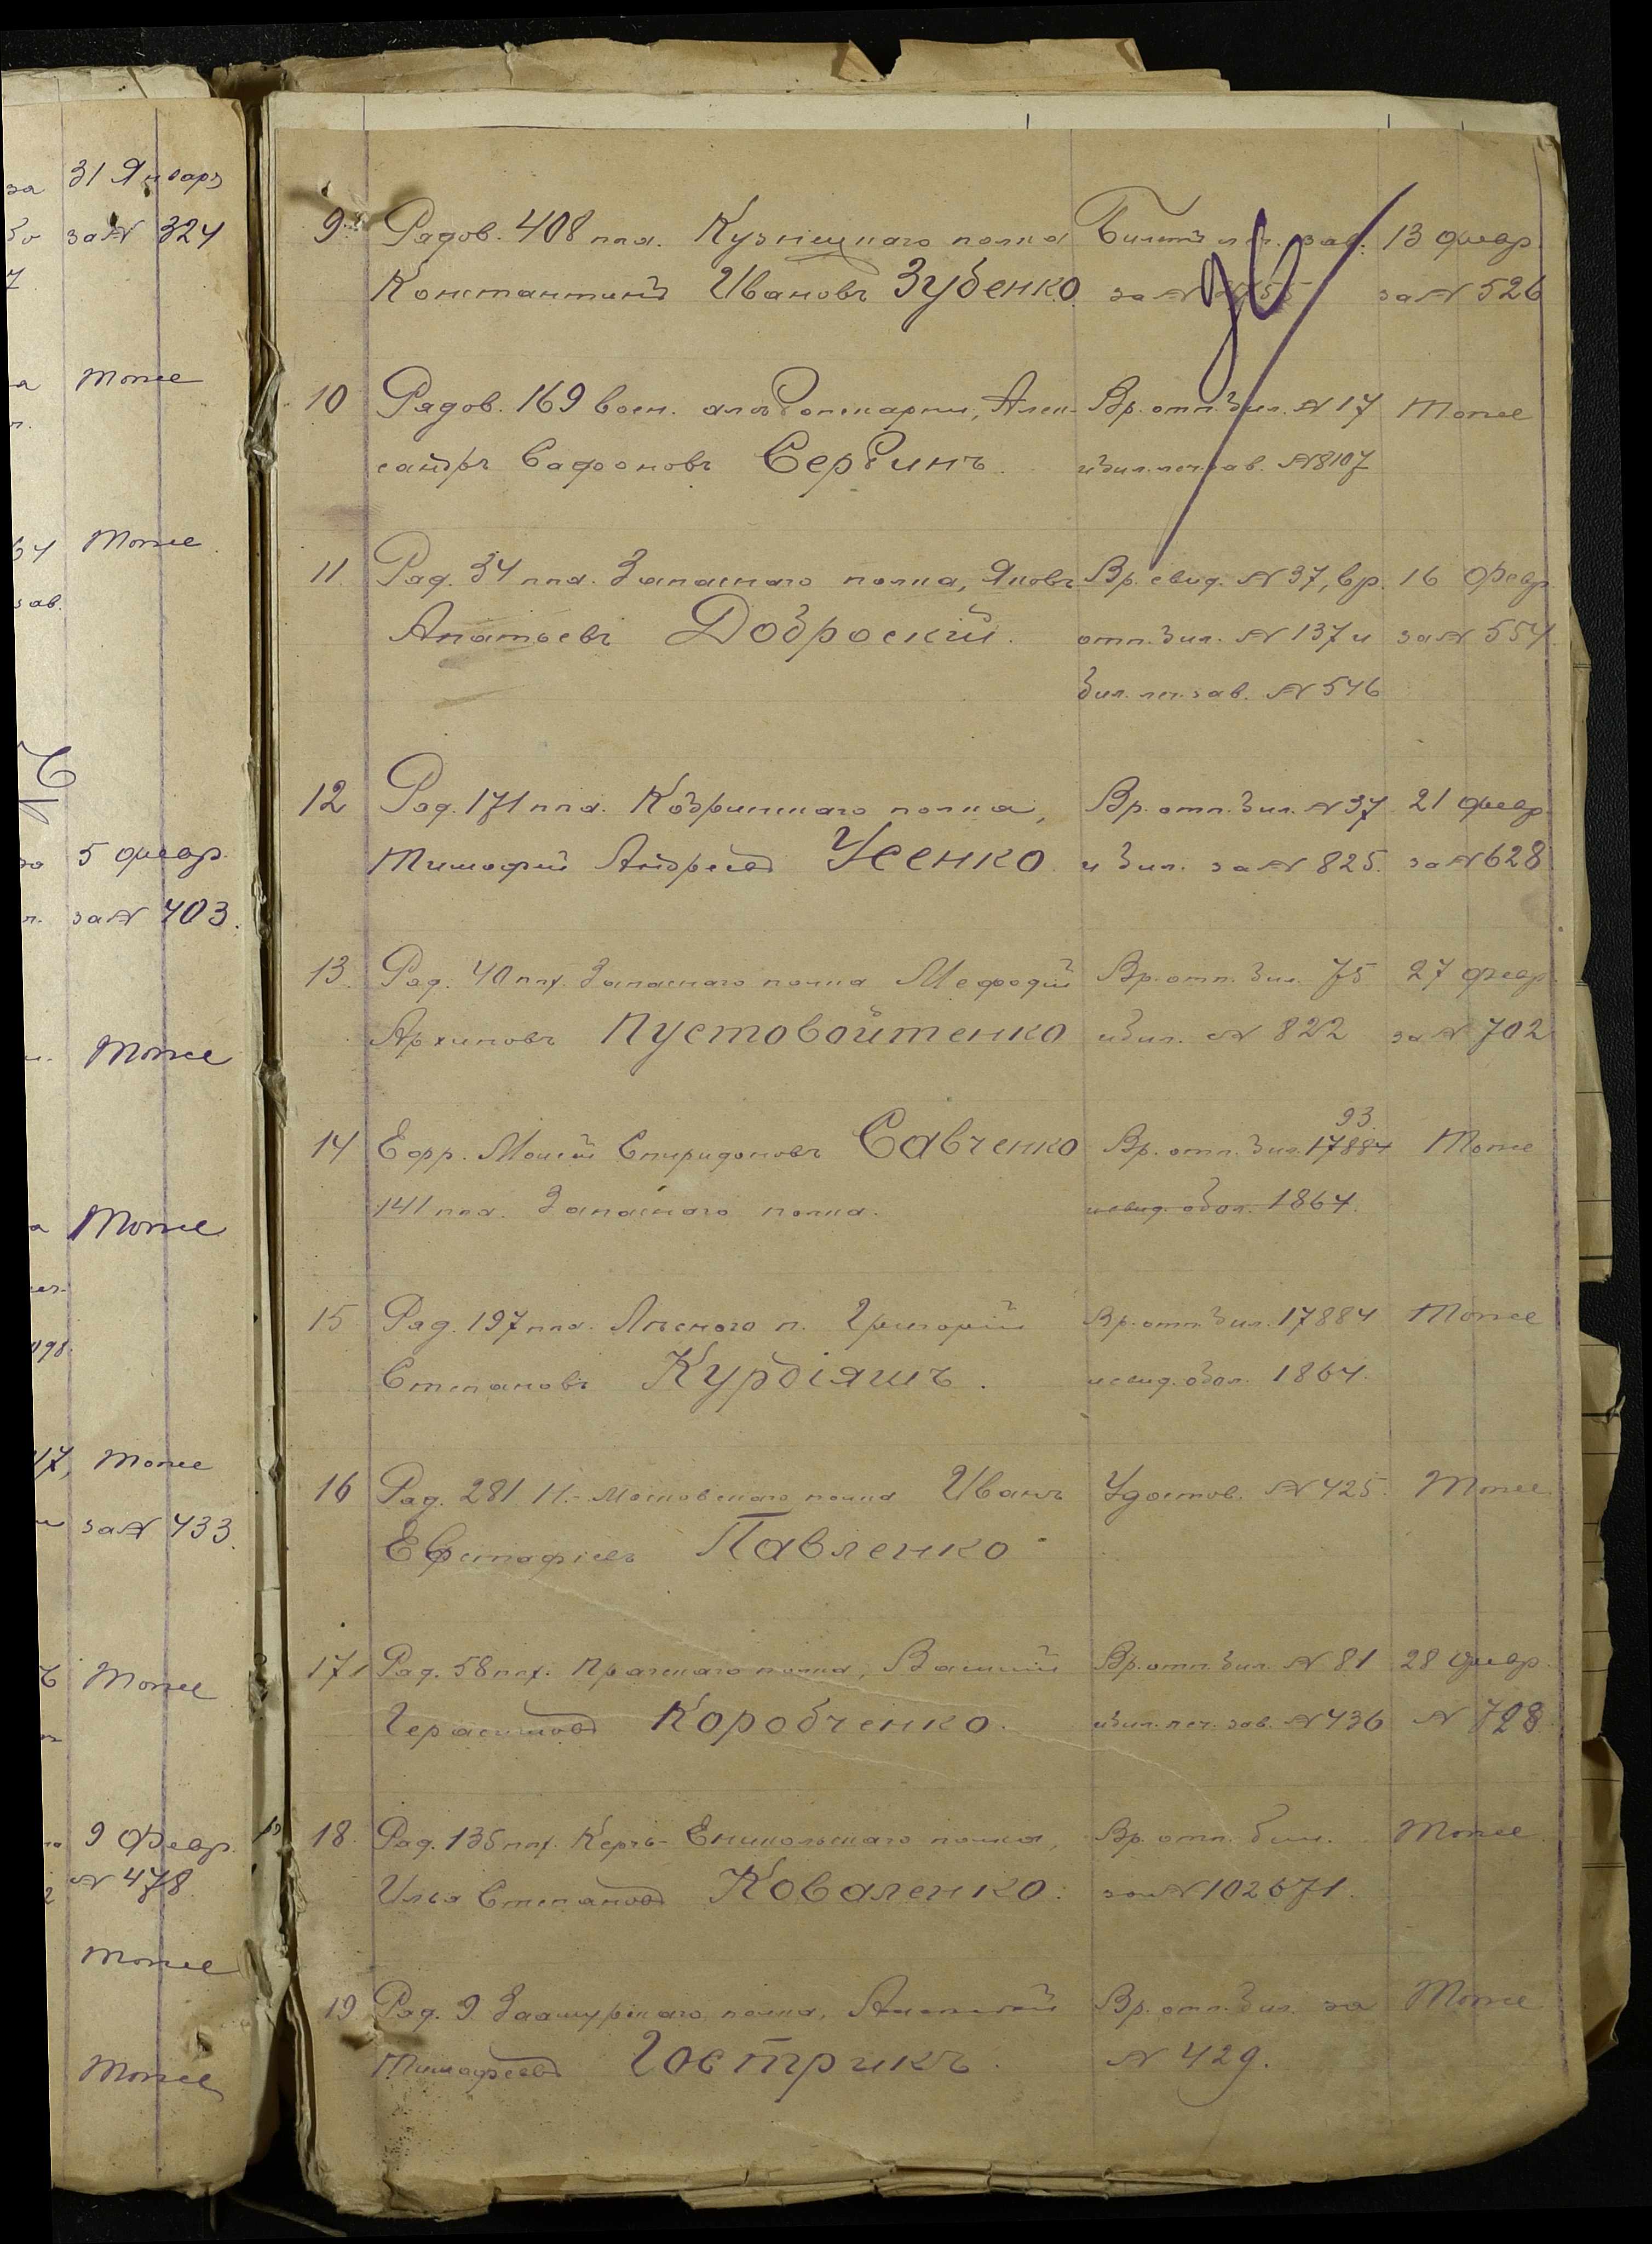 31 Январь
за № 324
Тоже
Тоже
5 февр.
за № 403.
Тоже
Тоже
Тоже
за № 433.
Тоже
9 Февр.
№ 478
Тоже
Тоже
9. Рядов. 408 пѣх. Кузнецкаго полка Билетъ леч. зав. 13 февр.
Константинъ Ивановъ Зубенко за № за № 526
10 Рядов. 169 воен. хлѣбопекарни, Алек- Вр. отп. бил. № 17 Тоже
сандръ Сафоновъ Сербинъ. и бил. леч. зав. № 8107
11. Ряд. 34 пѣх. Запаснаго полка, Яковъ Вр. свид. № 37, вр. 16 Февр.
Ипатьевъ Доброскій. отп. бил. № 137 и за № 554.
бил. леч. зав. № 546
12 Ряд. 171 пѣх. Кобринскаго полка, Вр. отп. бил. № 37 21 февр.
Тимофей Андреевъ Усенко и бил. за № 825. за № 628
13. Ряд. 40 пѣх. Запаснаго полка Мефодій Вр. отп. бил. 75 27 февр.
Архиповъ Пустовойтенко и бил. № 822 за № 702
93.
14 Ефр. Моисей Спиридоновъ Савченко Вр. отп. бил. 17884 Тоже
141 пѣх. Запаснаго полка. и свид. обол. 1864.
15 Ряд. 197 пѣх. Лѣсного п. Григорій Вр. отп. бил. 17884 Тоже
Степановъ Курбіяшъ. и свид. обол. 1864.
16 Ряд. 281 Н.-Московскаго полка Иванъ Удостов. № 425. Тоже.
Евстафіевъ Павленко
17 Ряд. 58 пѣх. Пражскаго полка, Василій Вр. отп. бил. № 81 28 февр.
Герасимовъ Коробченко. и бил. леч. зав. № 436 № 728
18. Ряд. 136 пѣх. Керчь-Еникольскаго полка, Вр. отп. бил. Тоже
Илья Степановъ Коваленко. за № 102671.
19 Ряд. 9 Заамурскаго полка, Вр. отп. бил. за Тоже
Тимофеевъ Гострикъ. № 429.